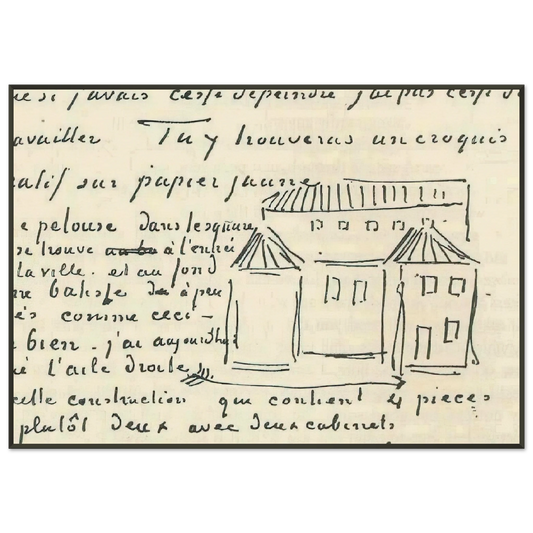 si j'avais cessé de peindre j'ai pas cessé de
availler Tu y trouveras un croquis
atif sur papier jaune
e pelouse dans le square
se trouve à l'entrée
la ville. et au fond
ne batisse à peu
ès comme ceci –
bien. j'ai aujourd'hui
é l'aile droite
cette construction qui contient 4 pièces
plutôt deux avec deux cabinets